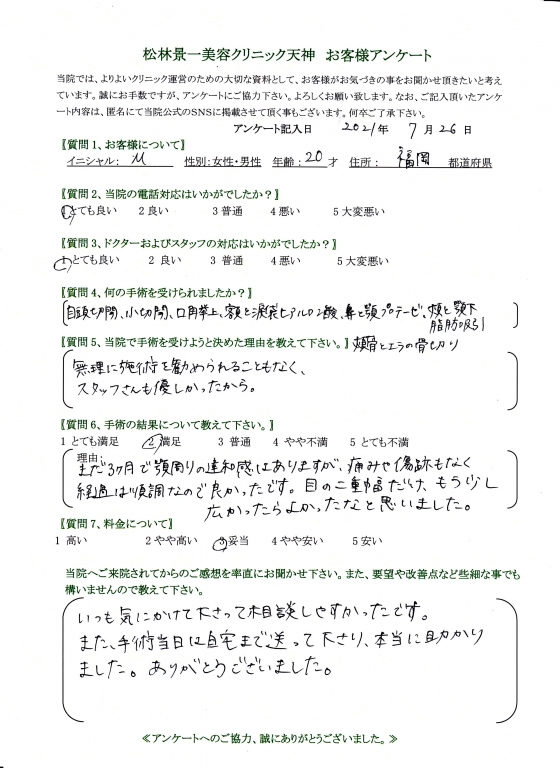 松林景一美容クリニック天神 お客様アンケート
当院では、よりよいクリニック運営のための大切な資料として、お客様がお気づきの事をお聞かせ頂きたいと考え
ています。誠にお手数ですが、アンケートにご協力下さい。よろしくお願い致します。なお、ご記入頂いたアンケ
ート内容は、匿名にて当院公式のSNSに掲載させて頂く事もございます。何卒ご了承下さい。
アンケート記入日 2021年 7月26日
【質問1、お客様について】
イニシャル: M 性別:女性・男性 年齢:20才 住所: 福岡 都道府県
【質問2、当院の電話対応はいかがでしたか?】
1とても良い 2良い 3普通 4悪い 5大変悪い
【質問3、ドクターおよびスタッフの対応はいかがでしたか?】
1とても良い 2 良い 3 普通 4悪い 5大変悪い
【質問4、何の手術を受けられましたか?】
目頭切開、小切開、口角挙上、額と涙袋ヒアルロン酸、鼻と顎プロテーゼ、頬と顎下
脂肪吸引
頬骨とエラの骨切り
【質問5、当院で手術を受けようと決めた理由を教えて下さい。】
無理に施術を勧められることもなく、
スタッフさんも優しかったから。
【質問6、手術の結果について教えて下さい。】
1 とても満足 2 満足 3 普通 4 やや不満 5 とても不満
理由:
まだ3ヶ月で顎周りの違和感はありますが、痛みや傷跡もなく
経過は順調なので良かったです。目の二重幅だけ、もう少し
広かったらよかったなと思いました。
【質問7、料金について】
1 高い 2やや高い 3妥当 4やや安い 5安い
当院へご来院されてからのご感想を率直にお聞かせ下さい。また、要望や改善点など些細な事でも
構いませんので教えて下さい。
いつも気にかけて下さって相談しやすかったです。
また、手術当日は自宅まで送って下さり、本当に助かり
ました。ありがとうございました。
≪アンケートへのご協力、誠にありがとうございました。≫